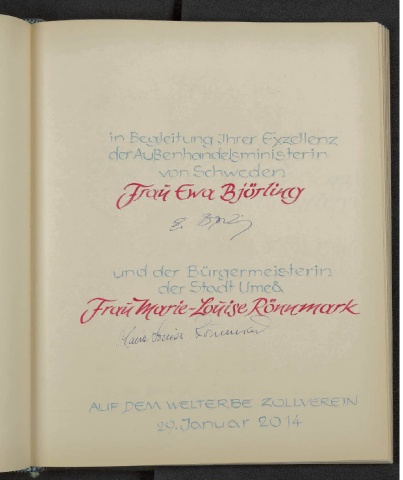 in Begleitung Ihrer Exzellenz
der Außenhandelsministerin
von Schweden
Frau Ewa Björling
E. Björling
und der Bürgermeisterin
der Stadt Umeå
Frau Marie-Louise Rönnmark
Marie-Louise Rönnmark
AUF DEM WELTERBE ZOLLVEREIN
29. Januar 2014